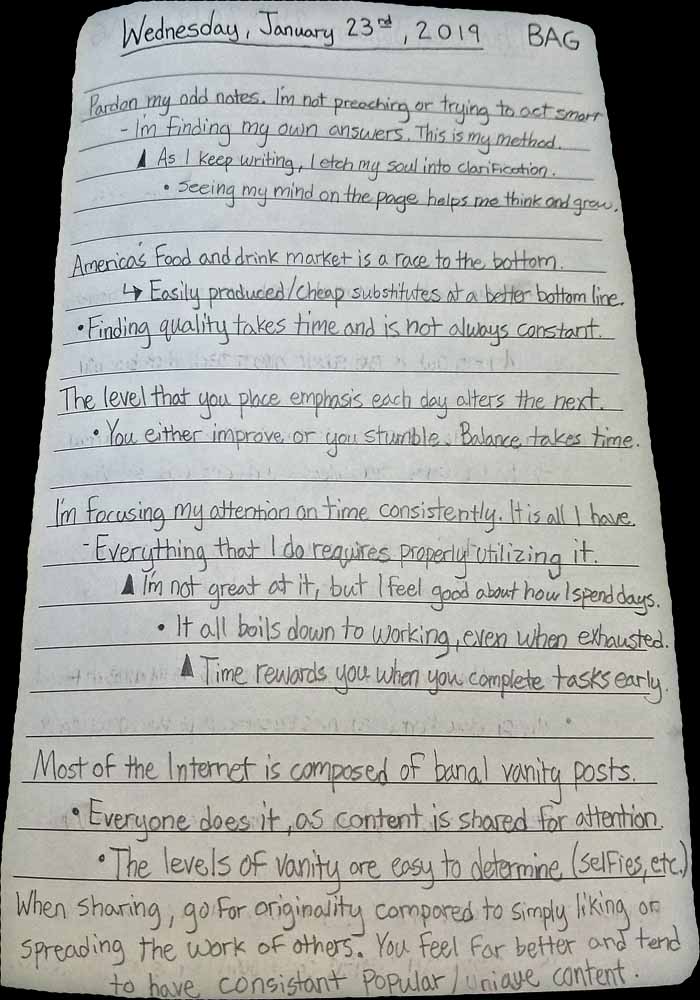 Wednesday, January 23rd, 2019 BAG
Pardon my odd notes. I'm not preaching or trying to act smart
- I'm finding my own answers. This is my method.
▲ As I keep writing, I etch my soul into clarification.
• Seeing my mind on the page helps me think and grow.
America's food and drink market is a race to the bottom.
↳ Easily produced/cheap substitutes at a better bottom line.
• Finding quality takes time and is not always constant.
The level that you place emphasis each day alters the next.
• You either improve or you stumble. Balance takes time.
I'm focusing my attention on time consistently. It is all I have.
- Everything that I do requires properly utilizing it.
▲ I'm not great at it, but I feel good about how I spend days.
• It all boils down to working, even when exhausted.
▲ Time rewards you when you complete tasks early.
Most of the Internet is composed of banal vanity posts.
• Everyone does it, as content is shared for attention.
• The levels of vanity are easy to determine (selfies, etc.)
When sharing, go for originality compared to simply liking or
spreading the work of others. You feel far better and tend
to have consistant popular/unique content.